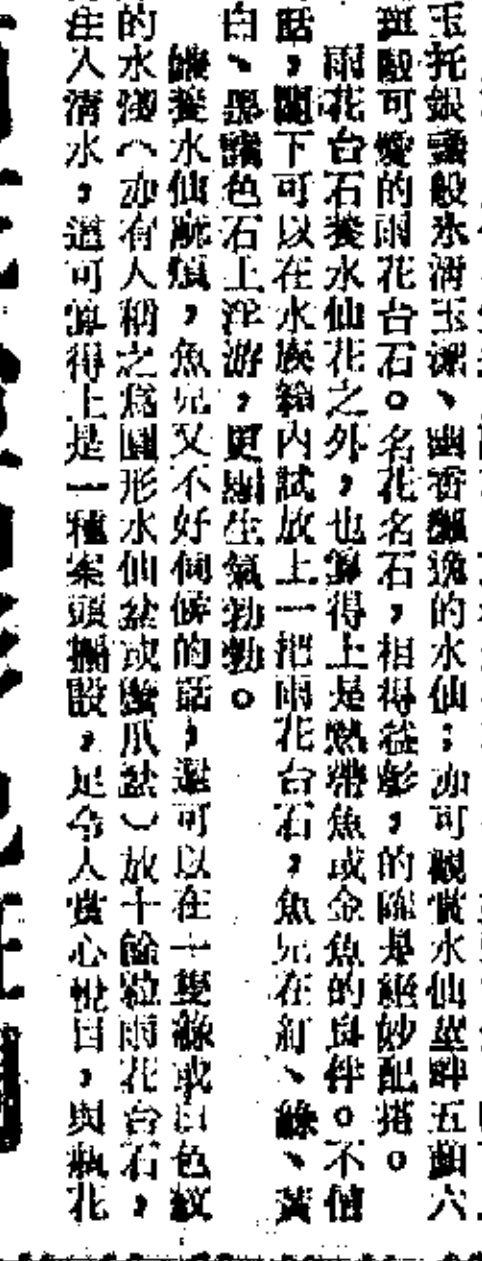 玉托銀盞般氷清玉潔、幽香飄逸的水仙；亦可觀賞水仙莖畔五顏六
斑駁可愛的雨花台石。名花名石，相得益彰，的確是絕妙配搭。
雨花台石養水仙花之外，也算得上是熱帶魚或金魚的良伴。不信
話，閣下可以在水族箱內試放上一把雨花台石，魚兒在紅、綠、黃
白、墨諸色石上浮游，更顯生氣勃勃。
嫌養水仙麻煩，魚兒又不好伺候的話，還可以在一隻綠或白色紋
的水淺（亦有人稱之爲圓形水仙盆或蟹爪盆）放十餘粒雨花台石，
注入清水，這可算得上是一種案頭擺設，足令人賞心悅目，與瓶花